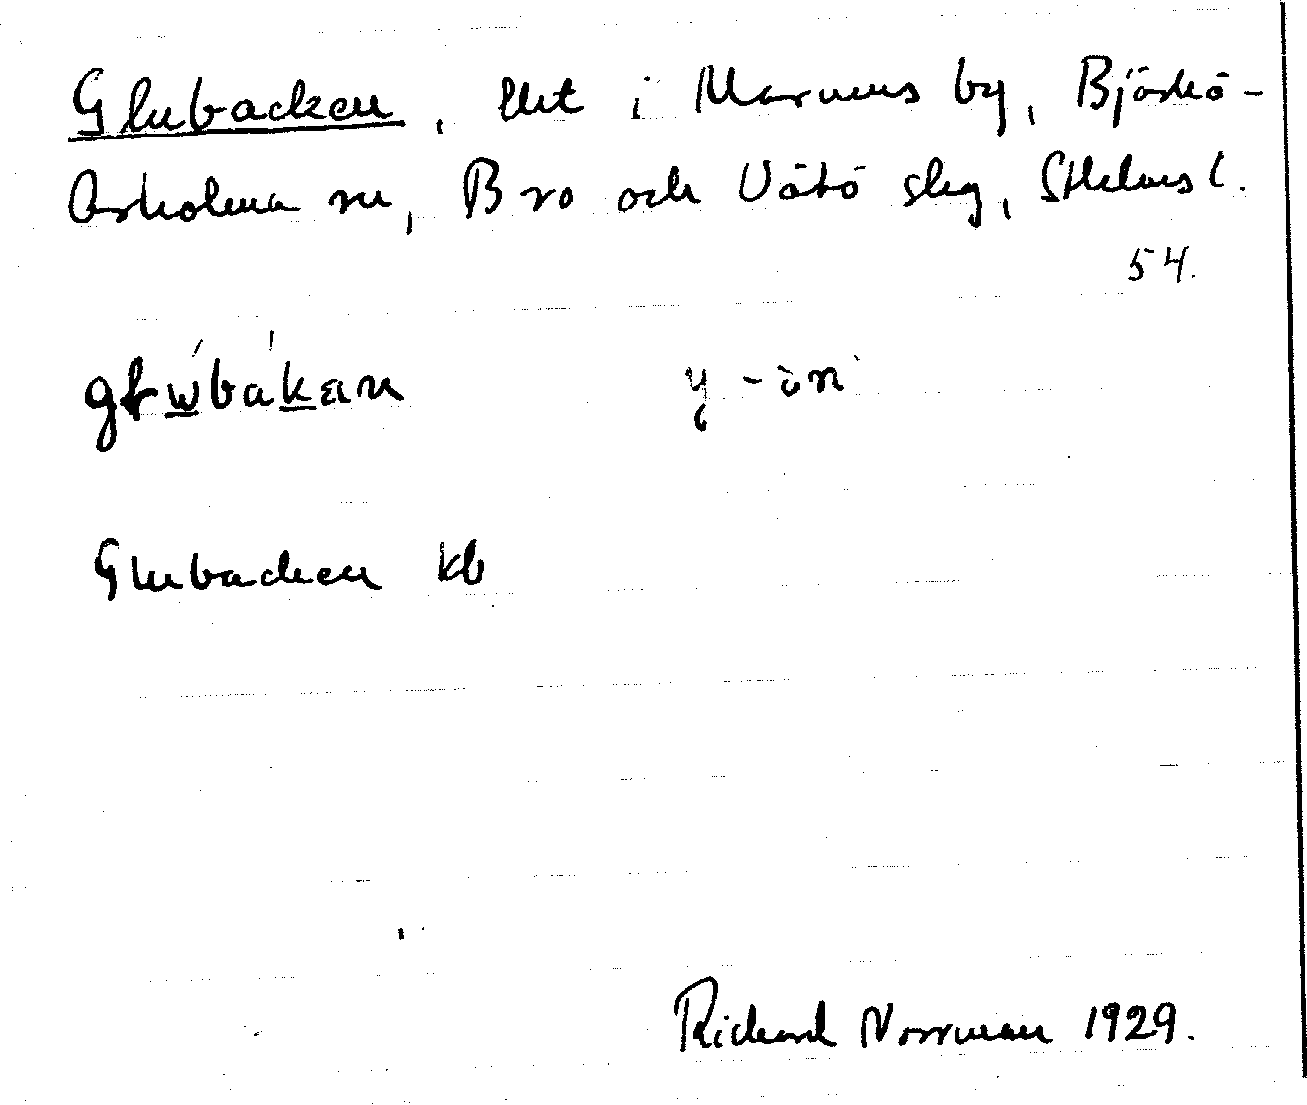 Glubacken, lht i Marums by, Björkö-
Arholma sn, Bro och Vätö skg, Sthlms l.
54.
glwbakan y -ön
Glubacken kb
Richard Norrman 1929.